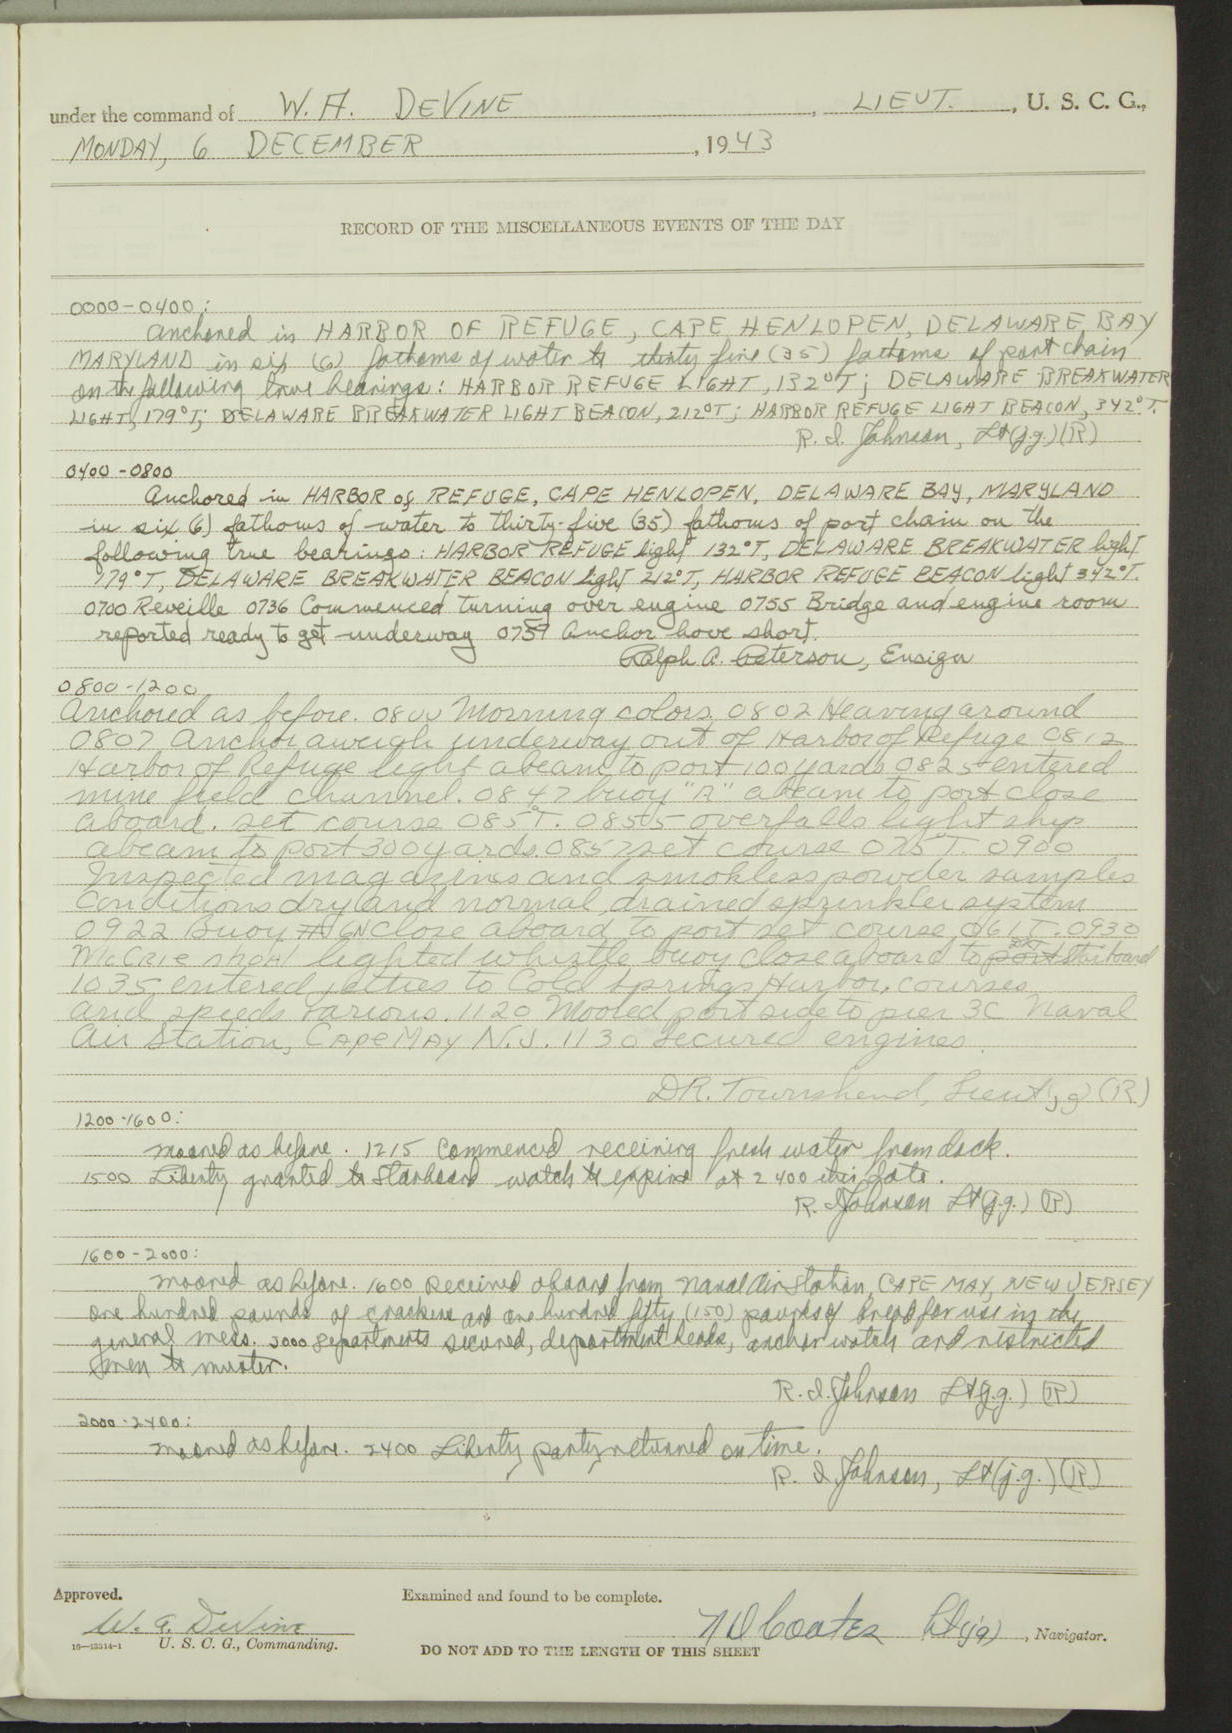 under the command of W. A. DEVINE, LIEUT., U. S. C. G.,
MONDAY, 6 DECEMBER, 1943
RECORD OF THE MISCELLANEOUS EVENTS OF THE DAY
0000-0400:
Anchored in HARBOR OF REFUGE, CAPE HENLOPEN, DELAWARE BAY
MARYLAND in six (6) fathoms of water to thirty five (35) fathoms of port chain
on the following true bearings: HARBOR REFUGE LIGHT, 132°T; DELAWARE BREAKWATER
LIGHT, 179°T; DELAWARE BREAKWATER LIGHT BEACON, 212°T; HARBOR REFUGE LIGHT BEACON, 342°T.
R. I. Johnson, Lt(j.g.)(R)
0400-0800
Anchored in HARBOR of REFUGE, CAPE HENLOPEN, DELAWARE BAY, MARYLAND
in six (6) fathoms of water to thirty-five (35) fathoms of port chain on the
following true bearings: HARBOR REFUGE light 132°T, DELAWARE BREAKWATER light
179°T, DELAWARE BREAKWATER BEACON light 212°T, HARBOR REFUGE BEACON light 342°T.
0700 Reveille 0736 Commenced turning over engine 0755 Bridge and engine room
reported ready to get underway 0759 Anchor hove short.
Ralph A. Peterson, Ensign
0800-1200
Anchored as before. 0800 Morning colors. 0802 Heaving around
0807 Anchor aweigh underway out of Harbor of Refuge 0812
Harbor of Refuge light abeam to port 100 yards 0825 entered
mine field channel. 0847 buoy "R" abeam to port close
aboard. set course 085°T. 0855 overfalls light ship
abeam to port 300 yards. 0857 set course 075°T. 0900
Inspected magazines and smokless powder samples
Conditions dry and normal, drained sprinkler system
0922 Buoy 6N close aboard to port set course 061°T. 0930
McCrie shoal lighted whistle buoy close aboard to port starboard
1035 entered jetties to Cold Springs Harbor, courses
and speeds various. 1120 Moored port side to pier 3C Naval
Air Station, Cape May N.J. 1130 Secured engines.
D.R. Townshend, Lieut j g (R)
1200-1600:
Moored as before. 1215 Commenced receiving fresh water from dock.
1500 Liberty granted to Starboard watch to expire at 2400 this date.
R. I. Johnson Lt(j.g.) (R)
1600-2000:
Moored as before. 1600 Received aboard from Naval Air Station, CAPE MAY, NEW JERSEY
one hundred pounds of crackers and one hundred fifty (150) pounds of bread for use in the
general mess. 2000 Departments secured, department heads, anchor watch and restricted
men to muster.
R. I. Johnson Lt(j.g.) (R)
2000-2400:
Moored as before. 2400 Liberty party returned on time.
R. I. Johnson, Lt(j.g.)(R)
Approved.
Examined and found to be complete.
W. A. DeVine
N D Coates Lt(jg), Navigator.
16—13314-1 U. S. C. G., Commanding.
DO NOT ADD TO THE LENGTH OF THIS SHEET